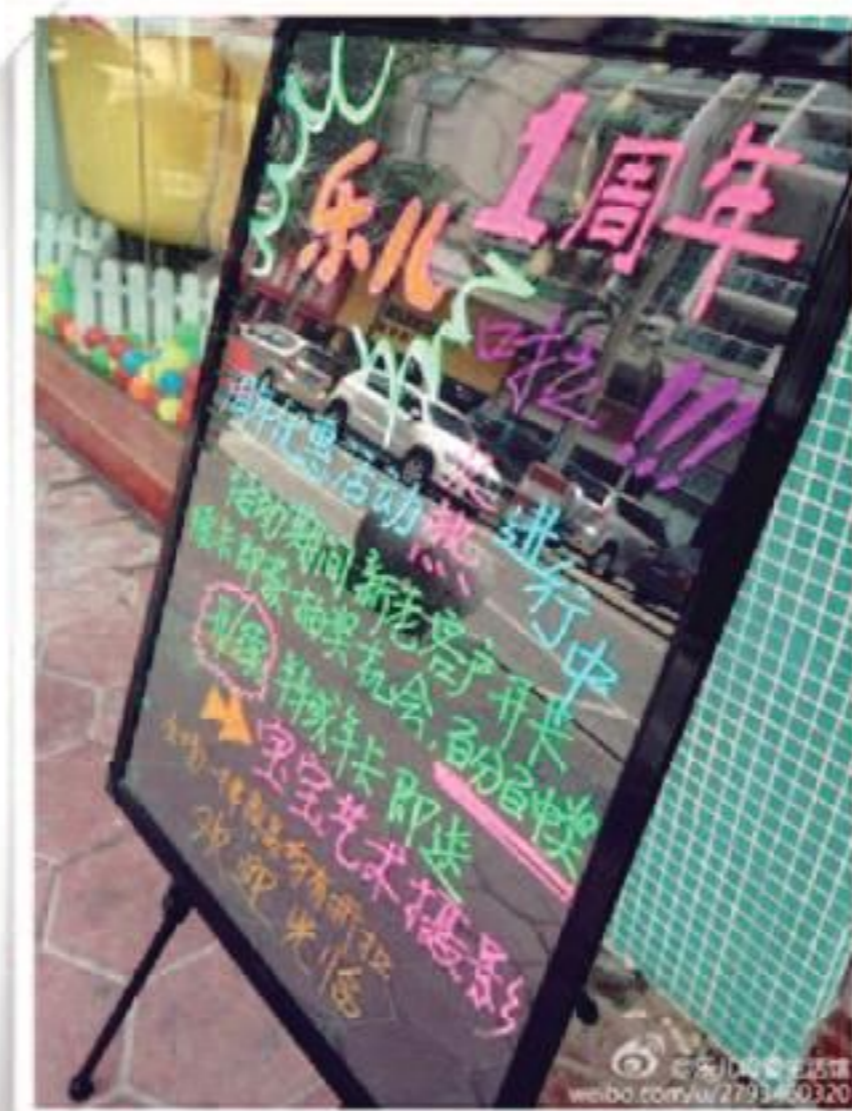 乐儿 1周年
啦!!!
周年优惠活动 火热 进行中
活动期间新老客户开卡
即享抽奖机会,百分百中奖
办年卡即送
宝宝艺术摄影
欢迎光临
weibo.com/u/2793460320